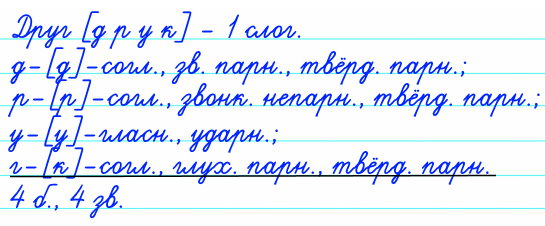 Друг [д р у к] – 1 слог.
д–[д]–согл., зв. парн., твёрд. парн.;
р–[р]–согл., звонк. непарн., твёрд. парн.;
у–[у]–гласн., ударн.;
г–[к]–согл., глух. парн., твёрд. парн.
4 б., 4 зв.